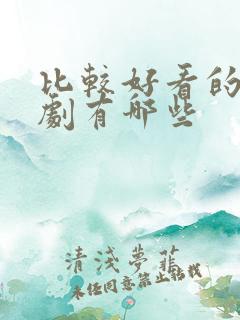 比較好看的
劇有哪些
清淺夢菲
未经同意禁止转载